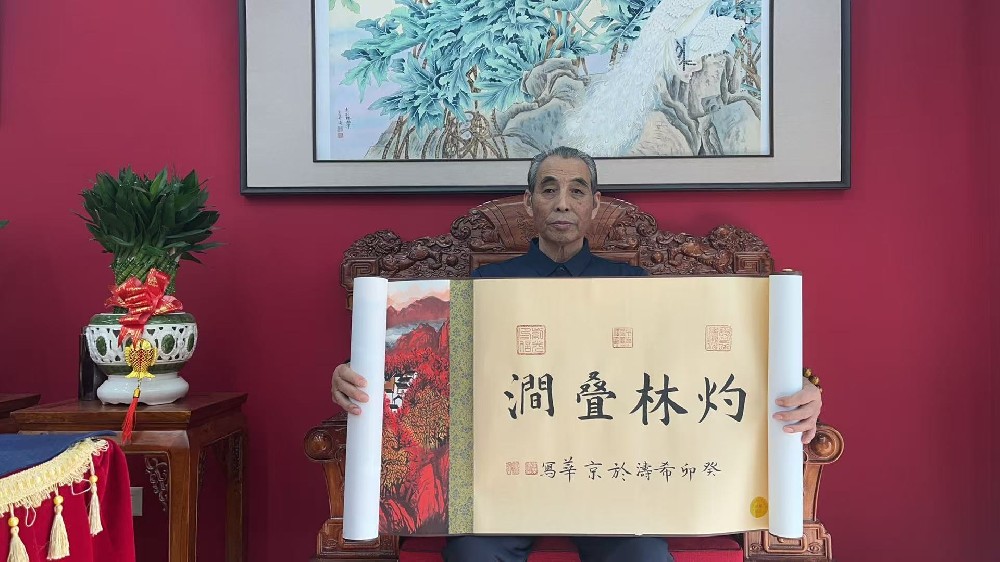 灼林叠澗
癸卯希濤於京華寫